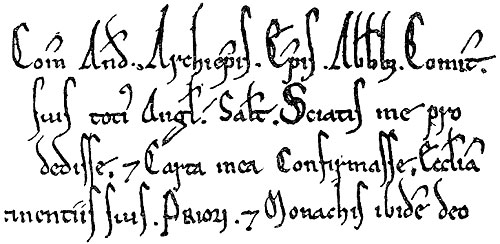 Com̄ And̄. Archiep̄is. Ep̄is. Abb̄b; Comit̄.
suis toti᾽ Angl̄. Sal̄t. Sciatis me pro
dedisse, ⁊ Carta mea Confirmasse, Eccl̄iā
amentiis suis. Priori. ⁊ Monachis ibidē deo